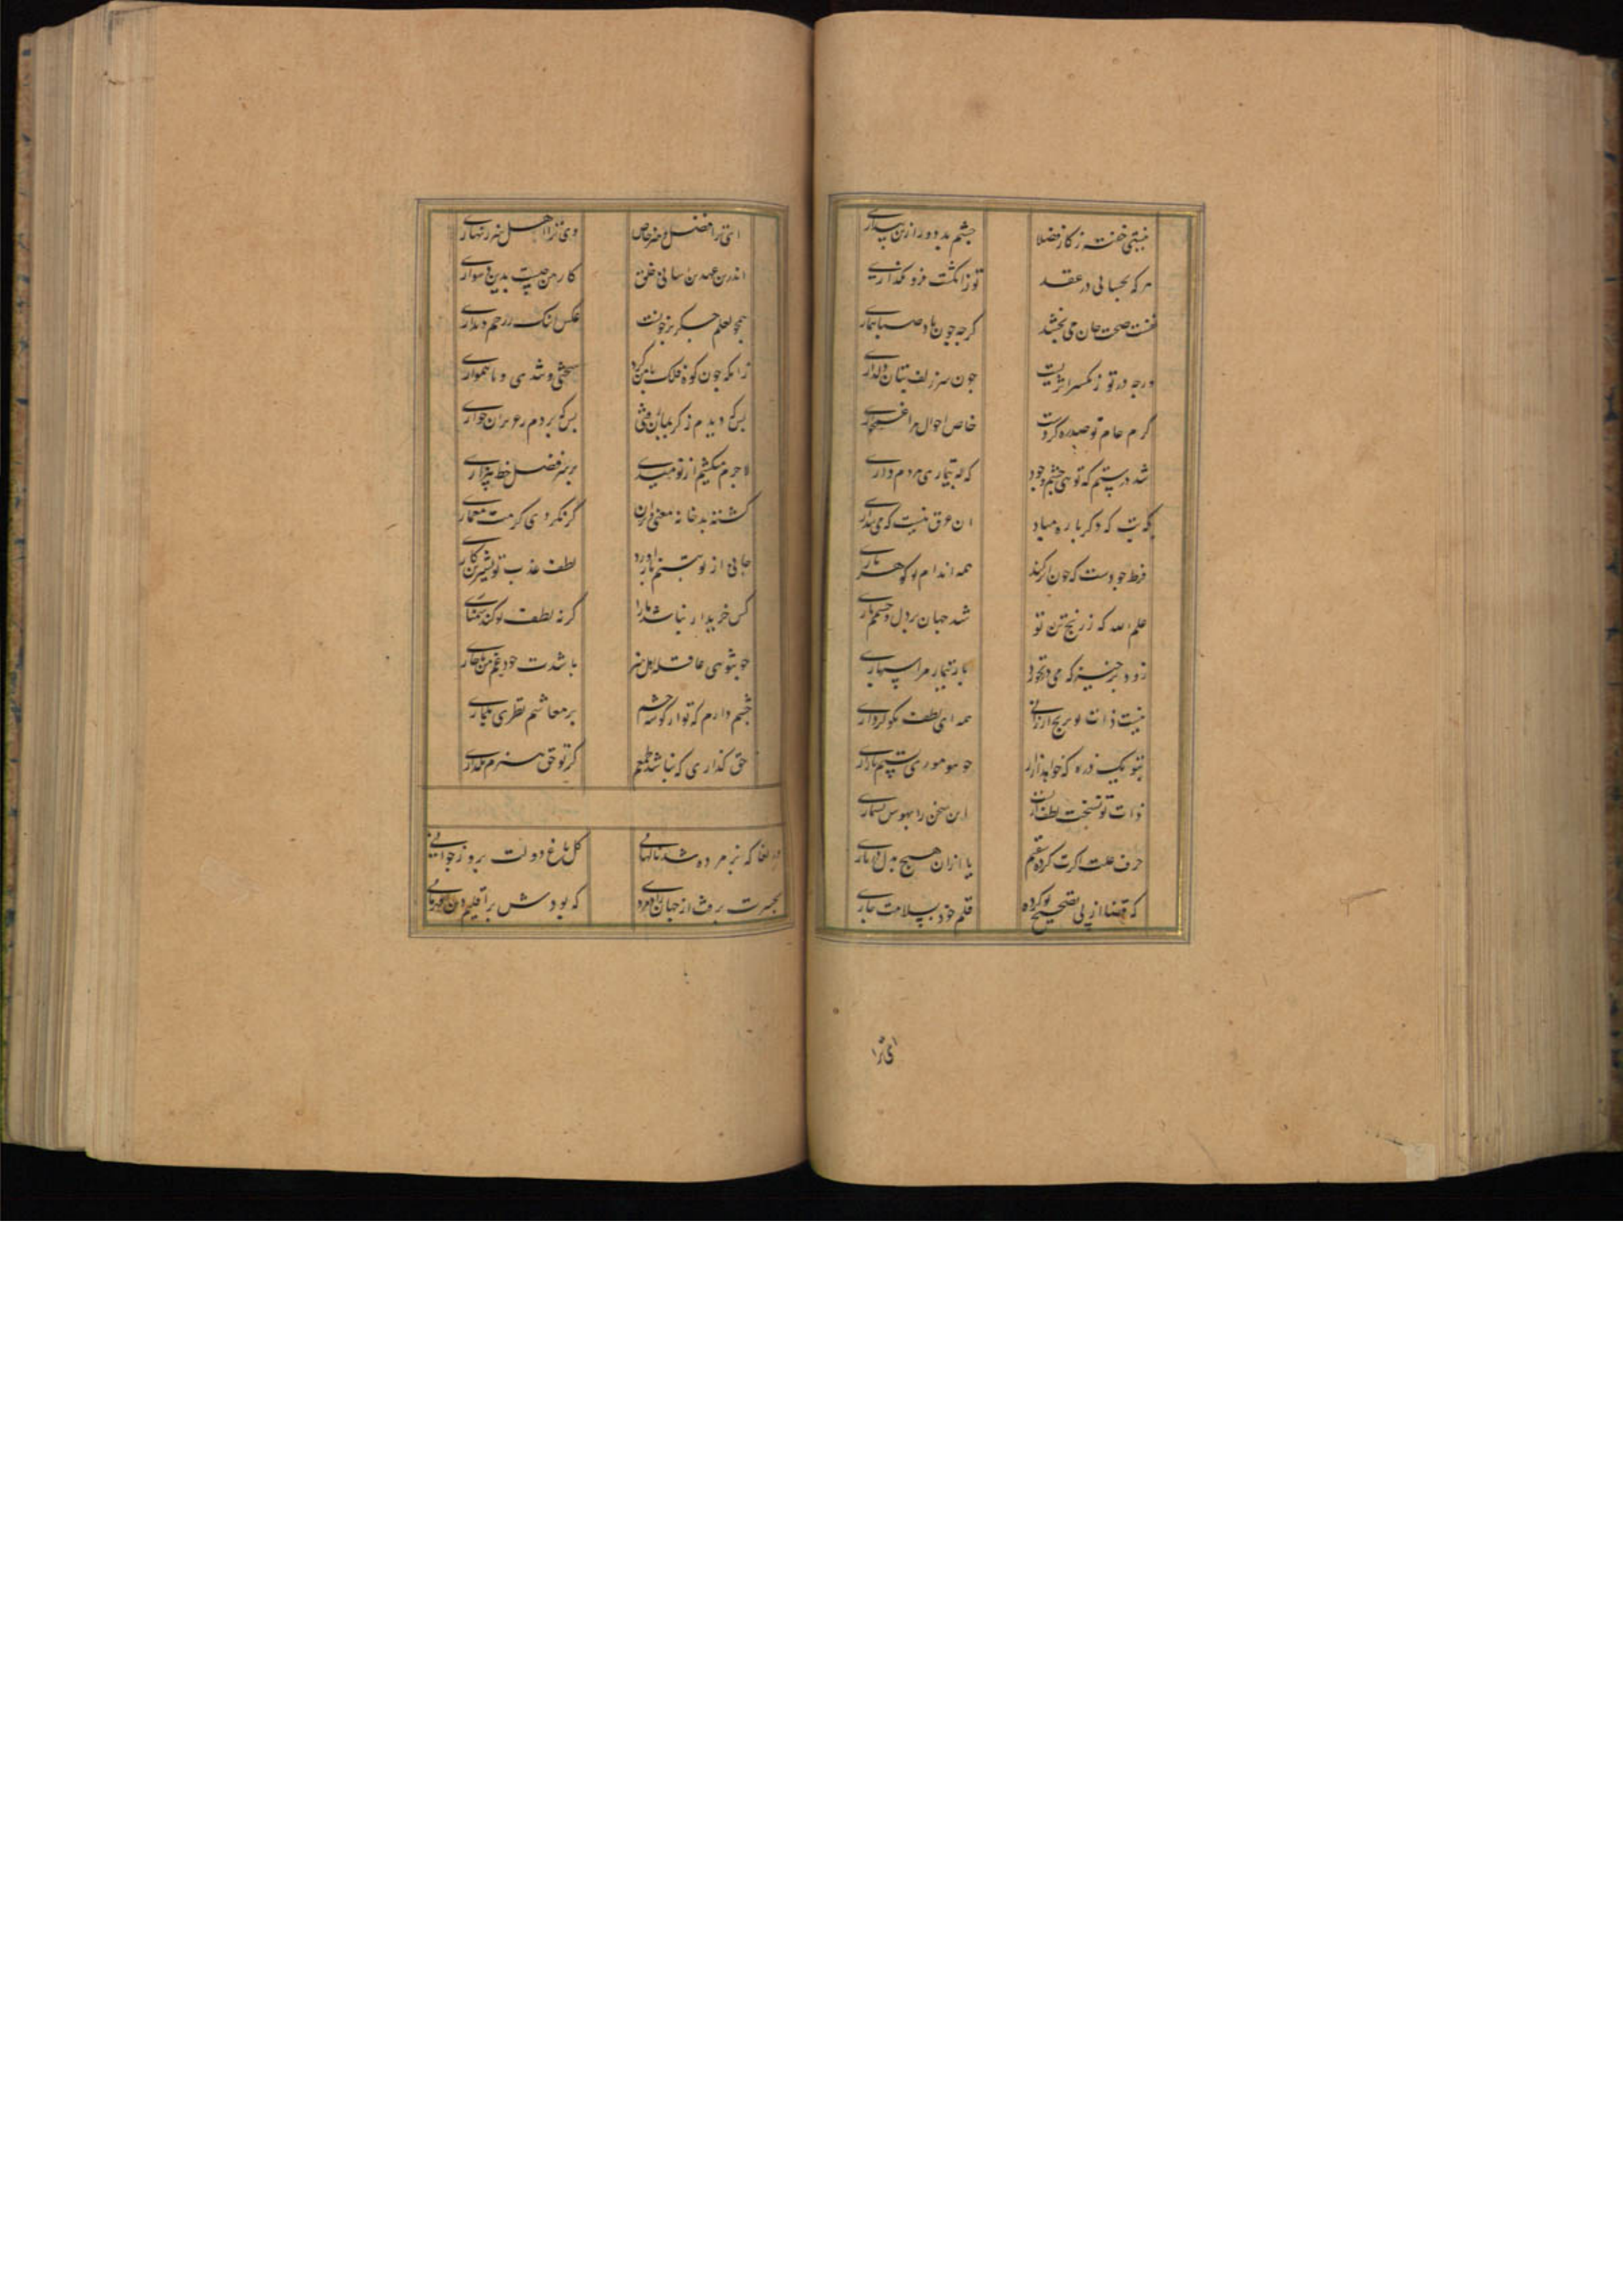 نیستی خفته ز کار فضلا
چشم بد دور ازین بیداری
هر که بحسابی در عقد
تو ز انگشت فرو نگذاری
نفست صحت جان می بخشد
گرچه چون باد صبا بیماری
ورچه در تو ز تکسر اثریست
چون سر زلف بتان دلداری
کرم عام تو صدره کردست
خاص احوال مرا غمخواری
شد درستم که تویی چشم وجود
که به بیماری مردم داری
تبت که دگر باره مباد
آن عرق نیست که می پنداری
فرط جودست که چون ابر کند
همه اندام تو گوهر باری
علم الله که ز رنج تن تو
شد جهان بر دل و جسمم تاری
زود برخیز که می درنخورد
بار تیمار مرا بسپاری
نیست ذات تو برنج ارزانی
همه ای لطف نکوکرداری
بتو یک ذره که خواهد آزار
چو تو موری بستم نازاری
ذات تو نسخت لطف ازلست
این سخن را بهوس نشماری
حرف علت اگرت کرده سقیم
تا ازان هیچ بدل در ناری
که قضا از پی تصحیح تو کرده
قلم خود بسلامت جاری
ای ترا
ای ترا فضل و هنر خاص
وی ترا اهل هنر زنهاری
اندرین عهد بی سامانی خلق
کار من چیست بدین دشواری
همچو لعلم جگر پر خونست
عکس اشک در رخم دیداری
زانکه چون کوه فلک با من کرد
سختی و تندی و ناهمواری
بس که دیدم ز کریمان
بس که بردم ز عزیزان خواری
لاجرم میکشم از نومیدی
بر سر فضل خط بیزاری
گشته بد خانه معنی ویران
گر نکردی کرمت معماری
جانی از نو بتنم باز آورد
لطف عذب تو بشیرین کاری
کس خریدار نباشد ما را
گر نه لطف تو کند سمساری
چو تویی عاقله اهل هنر
باشدت خود غم من ناچاری
چشم دارم که تو از گوشه چشم
بر معاشم نظری بگماری
حق گذاری که نباشد طمعم
گر تو حق هنرم بگذاری
دریغا که پژمرده شد ناگهانی
گل باغ دولت بروز جوانی
بحسرت برفت از جهان رادمردی
که بودش بر اقلیم دین قهرمانی